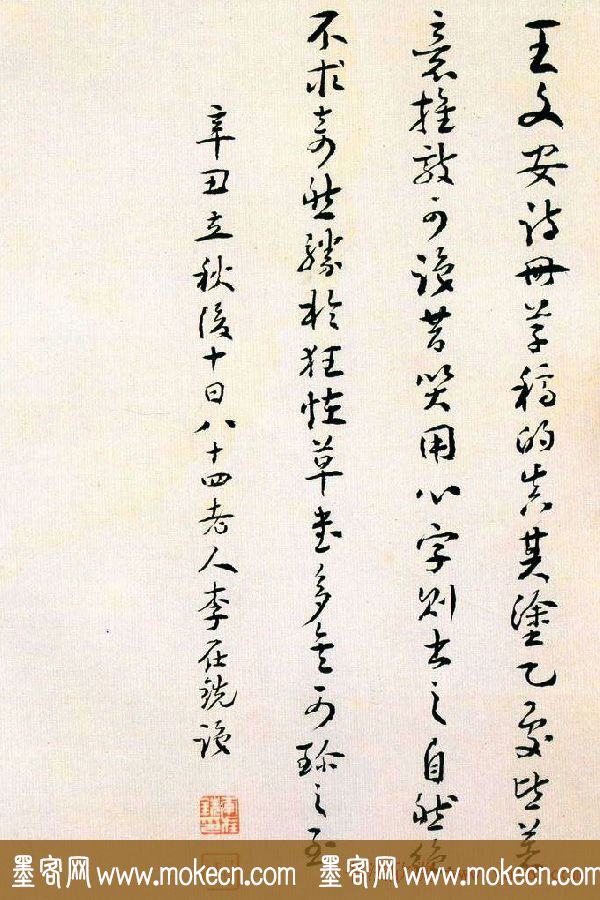 王文安詩冊草稿的真其塗乙處皆著
意推敲可識昔賢用心字則出之自然絶
不求奇然勝於狂怪草書多矣可珍之至
辛丑立秋後十日八十四老人李在銑識
墨客网 www.mokecn.com 墨客网 www.mokecn.com